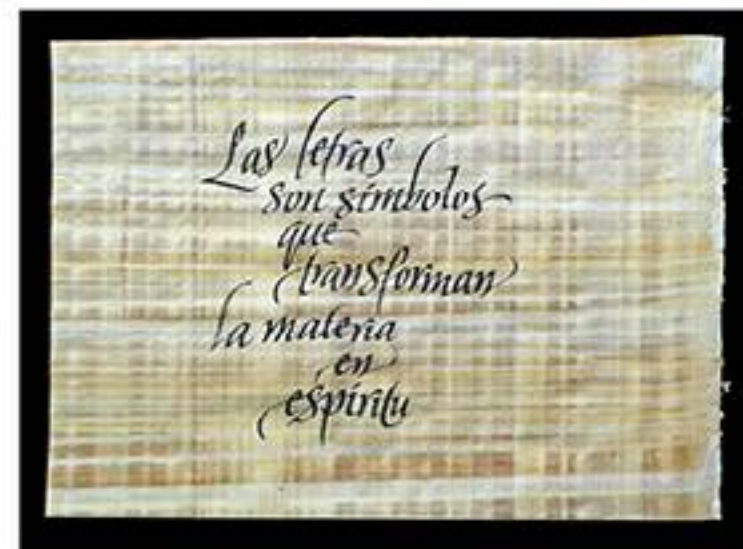 Las letras
son símbolos
que
transforman
la materia
en
espíritu